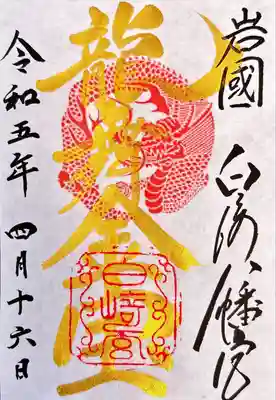 岩國
白崎八幡宮
龍金運
白崎宮
令和五年 四月十六日